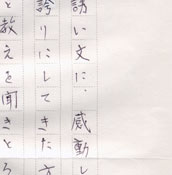 誘い文に、感動し
誇りにしてきた
と教えを聞きと